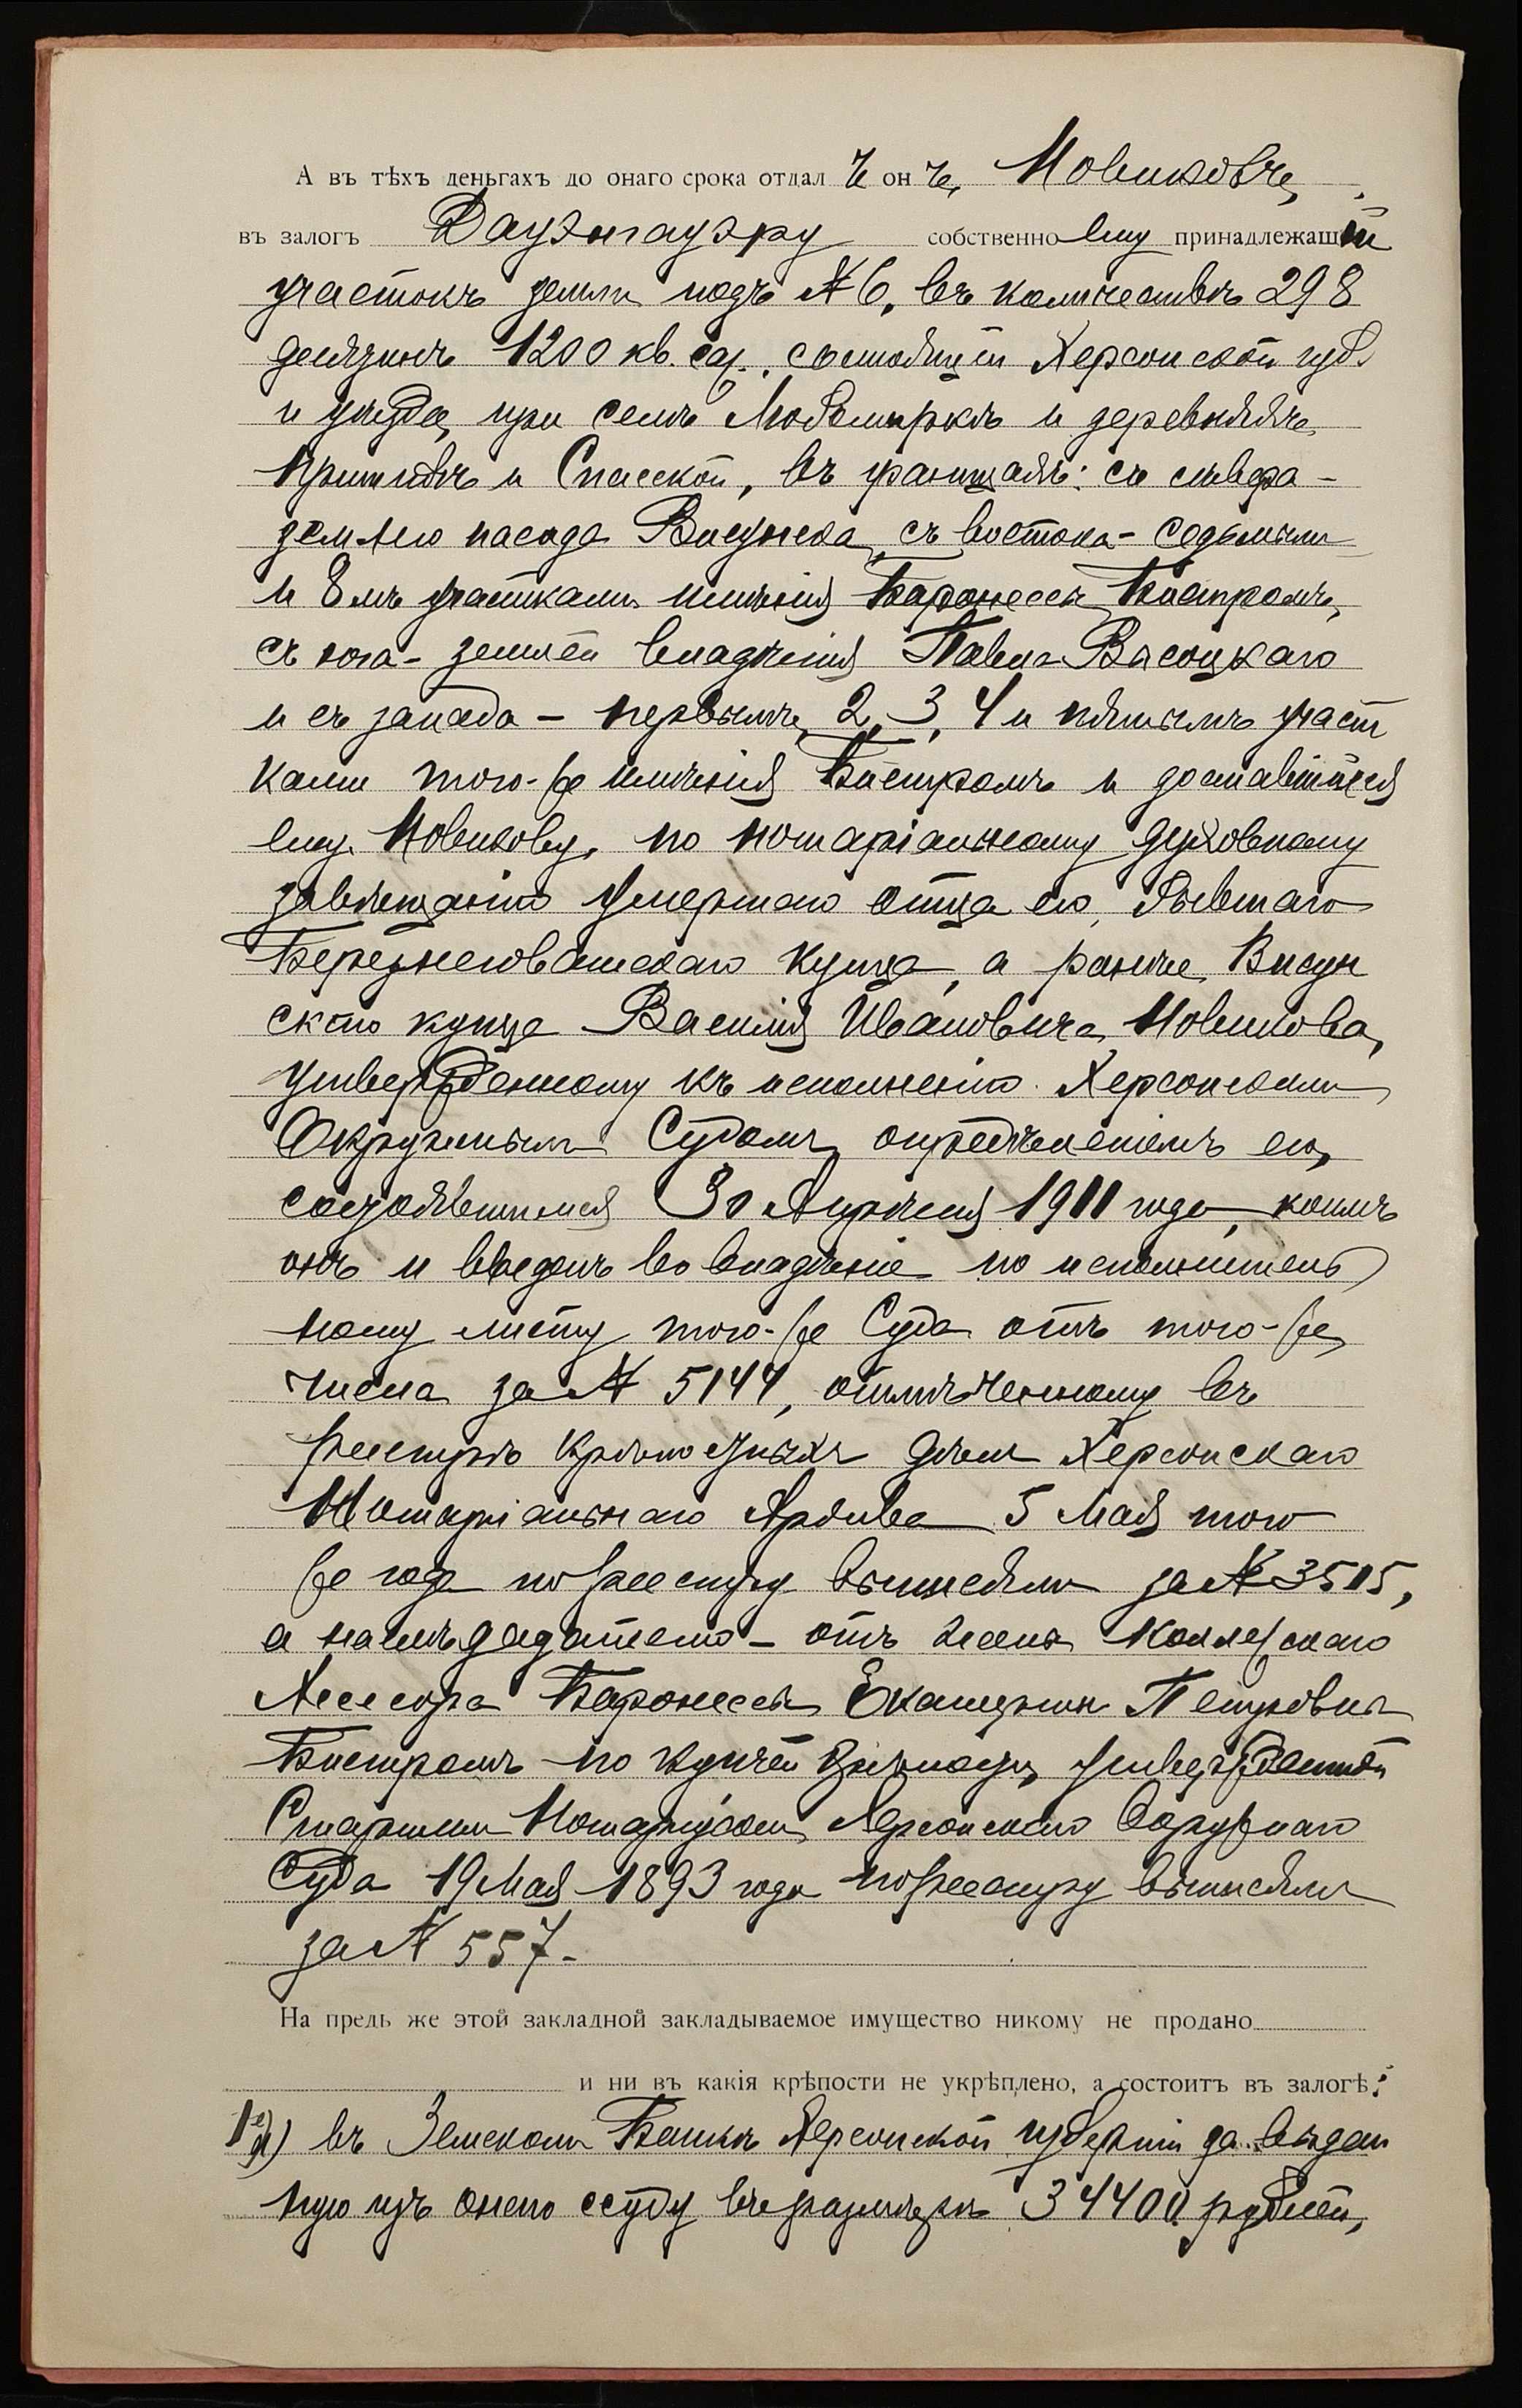 А въ тѣхъ деньгахъ до онаго срока отдалъ онъ, Новиковъ,
въ залогъ Даузнгауэру собственно ему принадлежащій
участокъ земли подъ № 6, въ количествѣ 298
десятинъ 1200 кв. саж., состоящій Херсонской губ.
и уѣзда, при селѣ Любомиркѣ и деревняхъ
и Спасской, въ границахъ: съ сѣвера –
землею посада Висунска, съ востока – седьмымъ
и 8мъ участками имѣнія Баронессы Бистромъ,
съ юга – землей владѣнія Павла Высоцкаго
и съ запада – первымъ, 2, 3, 4 и пятымъ участ
ками того-же имѣнія Бистромъ и доставшійся
ему, Новикову, по нотаріальному духовному
завѣщанію умершаго отца его, бывшаго
Березнеговатскаго купца, а ранѣе Висун
скаго купца Василія Ивановича Новикова,
утвержденному къ исполненію Херсонскимъ
Окружнымъ Судомъ, опредѣленіемъ его,
состоявшимся 30 Апрѣля 1911 года, коимъ
онъ и введенъ во владѣніе по исполнитель
ному листу того-же Суда отъ того-же
числа за № 5144, отмѣченному въ
реестрѣ крѣпостныхъ дѣлъ Херсонскаго
Нотаріальнаго Архива 5 Мая того
же года по реестру за № 3515,
а наслѣдодателю – отъ жены Коллежскаго
Асессора Баронессы Екатерины Петровны
Бистромъ по купчей крѣпости, утвержденной
Старшимъ Нотаріусомъ Херсонскаго Окружнаго
Суда 19 Мая 1893 года по реестру
за № 557. –
На предь же этой закладной закладываемое имущество никому не продано
и ни въ какія крѣпости не укрѣплено, а состоитъ въ залогѣ:
въ Земскомъ Банкѣ Херсонской губерніи за выдан
ную изъ онаго ссуду въ размѣрѣ 34400 рублей,